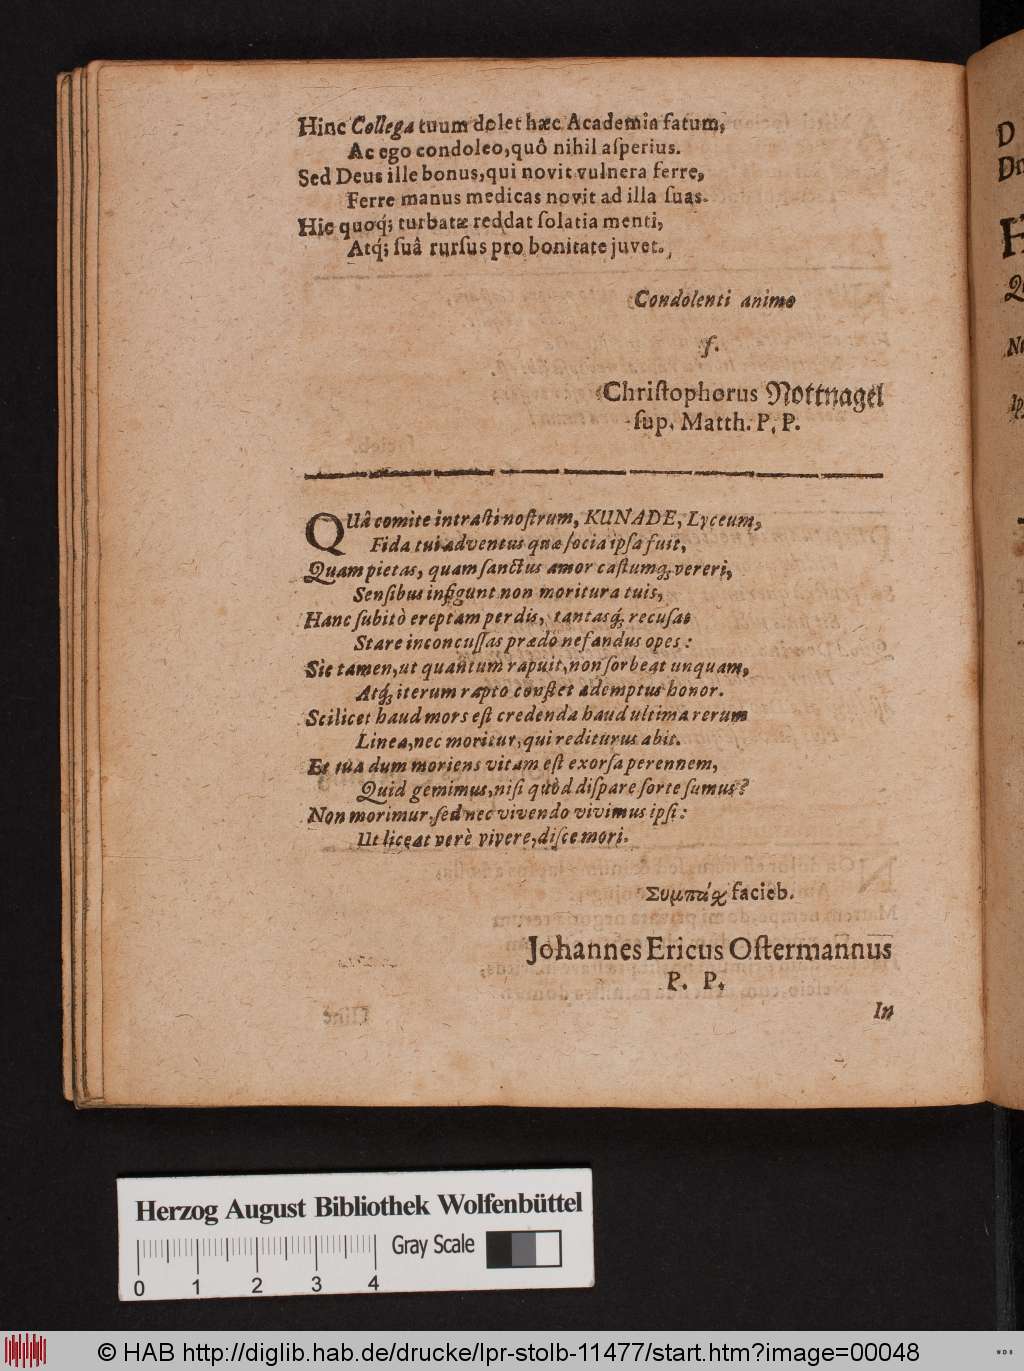 Hinc Collega tuum dolet hæc Academia fatum,
Ac ego condoleo, quô nihil aſperius.
Sed Deus ille bonus, qui novit vulnera ferre,
Ferre manus medicas novit ad illa ſuas.
Hic quoq; turbatæ reddat ſolatia menti,
Atq; ſuâ rurſus pro bonitate juvet.
Condolenti animo
f.
Chriſtophorus Nottnagel
ſup. Matth. P. P.
QUâ comite intraſti noſtrum, KUNADE, Lyceum,
Fida tui adventus quæ ſocia ipſa fuit,
Quam pietas, quam ſanctus amor caſtumq; vereri,
Senſibus infigunt non moritura tuis,
Hanc ſubitò ereptam perdis, tantasq; recuſas
Stare inconcuſſas prædo nefandus opes:
Sic tamen, ut quantum rapuit, non ſorbeat unquam,
Atq; iterum rapto conſtet ademptus honor.
Scilicet haud mors eſt credenda haud ultima rerum
Linea, nec moritur, qui rediturus abit.
Et tua dum moriens vitam eſt exorſa perennem,
Quid gemimus, niſi quòd diſpare ſorte ſumus?
Non morimur, ſed nec vivendo vivimus ipſi:
Ut liceat verè vivere, diſce mori.
facieb.
Johannes Ericus Oſtermannus
P. P.
In
Herzog August Bibliothek Wolfenbüttel
Gray Scale
0 1 2 3 4
© HAB http://diglib.hab.de/drucke/lpr-stolb-11477/start.htm?image=00048